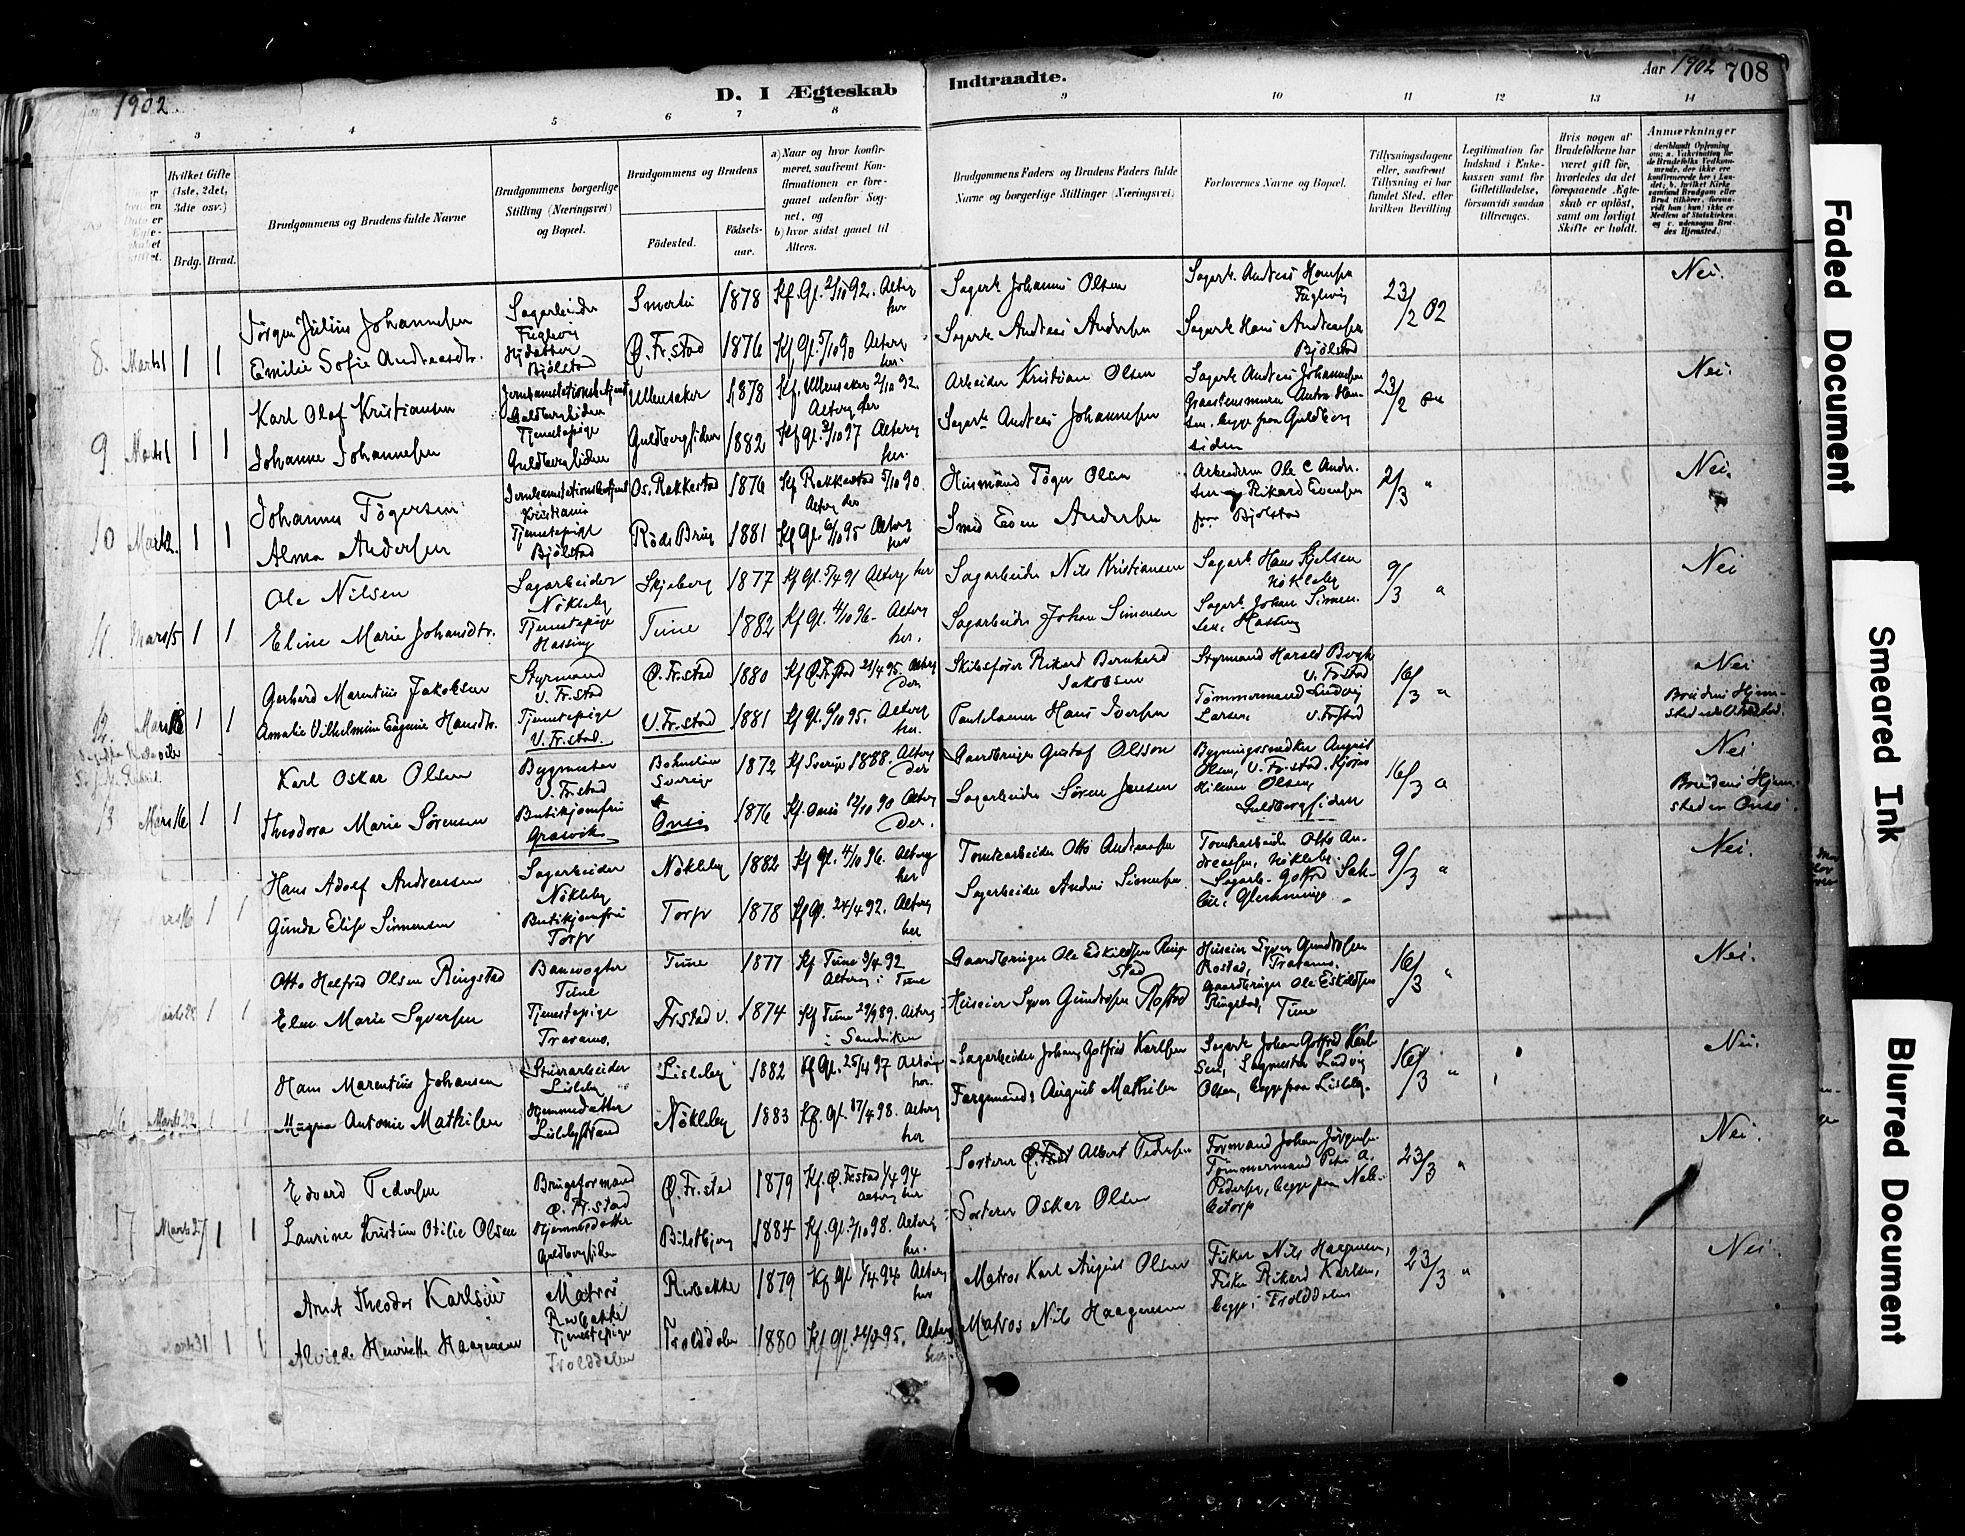 1902
D. I Ægteskab
Indtraadte.
Aar 1902 708
3 4 5 6 7 8 9 10 11 12 13 14
Hvilket Gifte
(1ste, 2det,
3die osv.)
Brdg. Brud.
Brudgommens og Brudens fulde Navne
Brudgommens borgerlige
Stilling (Næringsvei)
og Bopæl.
Brudgommens og Brudens
Födested.
Födsels-
aar.
a) Naar og hvor konfir-
meret, saafremt Kon-
firmationen er fore-
gaaet udenfor Sog-
net, og
b) hvor sidst gaaet til
Alters.
Brudgommens Faders og Brudens Faders fulde
Navne og borgerlige Stillinger (Næringsvei.)
Forlovernes Navne og Bopæl.
Tillysningsdagene
eller, saafremt
Tillysning ei har
fundet Sted, efter
hvilken Bevilling
Legitimation for
Indskud i Enke-
kassen samt for
Giftetilladelse,
forsaavidt saadan
tiltrænges.
Hvis nogen af
Brudefolkene har
været gift för,
hvorledes da det
foregaaende Ægte-
skab er oplöst,
samt om lovligt
Skifte er holdt.
Anmærkninger
(deriblandt Oplysning
om: a. Vakcination for
de Brudefolks Vedkom-
mende, der ikke ere
konfirmerede her i Lan-
det; b. hvilket Kirke-
samfund Brudgom eller
Brud tilhörer, forsaa-
vidt han (hun) ikke er
Medlem af Statskirken;
og c. udensogns Bru-
des Hjemsted.)
8. Marts 1 1 1
Jörgen Julius Johannesen
Sagarbeider
Fuglevig
Smertu
1878
Kf. Gl. 2/10 92. Alterg
her
Sagarb. Johannes Olsen
Sagarb. Andreas Hansen
Fuglevig
23/2 02
Nei.
Emilie Sofie Andreasdtr.
Hjdatter
Bjölstad
Ø. Fr.stad
1876
Kf Gl. 5/10 90 Alterg
her.
Sagarb. Andreas Andersen
Sagarb. Hans Andreassen
Bjölstad
9. Marts 1 1 1
Karl Olaf Kristiansen
Jernbanestationsbetjent
Guldbergsiden
Ullensaker
1878
Kf. Ullensaker 2/10 92.
Alterg der
Arbeider Kristian Olsen
Sagarb. Andreas Johannesen
Graastensmurer Anton Han-
sen. begge fra Guldberg
siden
23/2
Nei.
Johanne Johannesen
Tjenestepige
Guldbergsiden
Guldbergsiden
1882
Kf Gl. 3/10 97 Alterg
her.
Sagarb. Andreas Johannesen
10 Marts 2. 1 1
Johannes Tögersen
Jernbanestationsbetjent
Kristiania
Os. Rakkestad
1876
Kf Rakkestad 5/10 90.
Alterg der
Husmand Töger Olsen
Arbeiderne Ole C. Ander-
sen og Rikard Evensen
fra Bjölstad
2/3 "
Nei.
Alma Andersen
Tjenestepige
Bjölstad
Röds Brug
1881
Kf Gl. 6/10 95 Alterg
her
Smed Even Andersen
11. Marts 15 1 1
Ole Nilsen
Sagarbeider
Nökleby
Skjeberg
1877
Kf Gl. 5/4 91 Alterg her
Sagarbeider Nils Kristiansen
Sagarb. Hans Kjelsen
Nökleby
9/3 "
Nei
Eline Marie Johansdtr.
Tjenestepige
Hassing
Tune
1882
Kf Gl. 4/10 96. Alterg
her.
Sagarbeider Johan Simensen
Sagarb. Johan Simen-
sen, Hassing
12. Marts 1 1
Gerhard Marentius Jakobsen
Styrmand
V. Fr.stad
Ø. Fr.stad
1880
Kf Ø. Fr.stad 21/4 95. Alterg
der
Skibsförer Rikard Bernhard
Jakobsen
Styrmand Harald Bergh
V. Fr.stad
16/3 "
Nei
Amalie Vilhelmine Eugenie Hansdtr.
Tjenestepige
V. Fr.stad.
V. Fr.stad
1881
Kf Gl. 6/10 95. Alterg
her.
Hans Iversen
Tömmermand Ludvig
Larsen, V. Fr.stad
Brudens Hjem-
sted
13 Marts 16 1 1
Karl Oskar Olsen
Bygmester
V. Fr.stad
Bohuslän
Sverige
1872
Kf Sverige 1888. Alterg
der
Gaardbruger Gustaf Olsson
Bygningssnedker August
Olsen, V. Fr.stad.
Olsen,
Guldbergsiden
16/3 "
Nei
Theodora Marie Sörensen
Butikjomfru
Græsvik
Onsö
1876
Kf. Onsö 12/10 90 Alterg
der.
Sagarbeider Sören Jensen
Brudens Hjem-
sted er Onsö.
1 1
Hans Adolf Andreassen
Sagarbeider
Nökleby
Nökleby
1882
Kf Gl. 4/10 96. Alterg
her
Tomtearbeider Otto Andreassen
Tomtearbeider Otto An-
dreassen, Nökleby.
9/3 "
Nei.
Gunda Elise Simensen
Butikjomfru
Torp
Torp
1878
Kf Gl. 24/4 92. Alterg
her
Sagarbeider Andreas Simensen
Marts 22 1 1
Otto Helfred Olsen Ringstad
Banevogter
Tune
Tune
1877
Kf Tune 3/4 92
Alterg i Tune
Gaardbruger Ole Eskildsen Ring-
stad
Huseier Syver Gundersen
Rostad, Traramo.
16/3 "
Nei.
Elen Marie Syversen
Tjenestepige
Traramo.
Fr.stad V.
1874
Kf Tune 29/9 89. Alterg
i Sandviken
Huseier Syver Gundersen Rostad
Gaardbruger Ole Eskildsen
Ringstad, Tune
Marts 22 1 1
Hans Marentius Johansen
Stuerarbeider
Lisleby
Lisleby
1882
Kf Gl. 25/4 97 Alterg
her.
Sagarbeider Johan Gotfred Karlsen
Sagarb Johan Gotfred Karl-
sen, Sagmester Ludvig
Olsen, begge fra Lisleby.
16/3 "
Nei.
Magna Antonie Mathilsen
Hjemmedatter
Lislebystrand
Nökleby
1883
Kf. Gl. 17/4 98. Alterg
her
Færgemand August Mathilsen
17 Marts 27 1 1
Edvard Pedersen
Brugsformand
Ø. Fr.stad
Ø. Fr.stad
1879
Kf. Ø. Fr.stad 1/4 94
Alterg her
Sorterer Albert Pedersen
Formand Johan Jörgensen
Tömmermand Peter A.
Pedersen, begge fra Nab-
betorp
23/3 "
Nei.
Laurine Kristine Otilie Olsen
Hjemmedatter
Guldbergsiden
1884
Kf. Gl. 2/10 98. Alterg
her.
Sorterer Oskar Olsen
Marts 31 1 1
Arnt Theodor Karlsen
Matros
Rødbakke
1879
Kf Gl 1/4 94 Alterg
her
Matros Karl August Olsen
Fisker Nils Haagensen,
Fisker Rikard Karlsen,
begge i Trolddalen
23/3 "
Nei.
Alvilde Henriette Haagensen
Tjenestepige
Trolddalen
Trolddalen
1880
Alterg
her.
Matros Nils Haagensen
Faded Document
Smeared Ink
Blurred Document